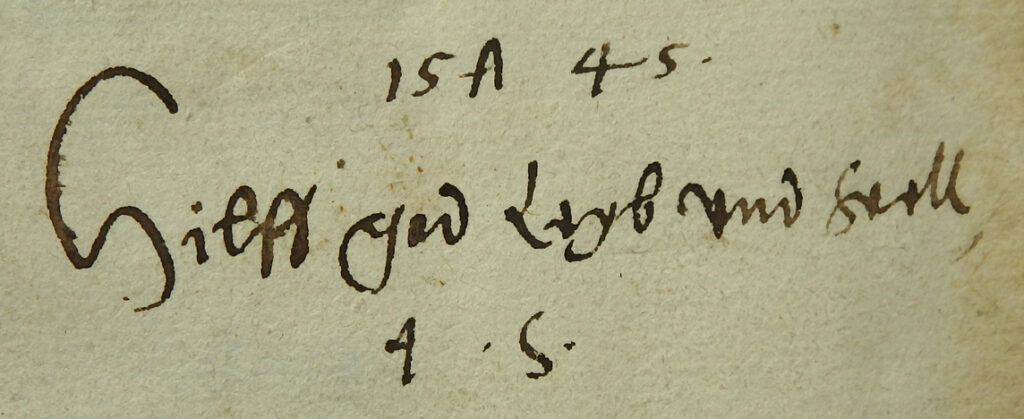 15 A 45.
Hilff god Leyb vnd seell
A . S.